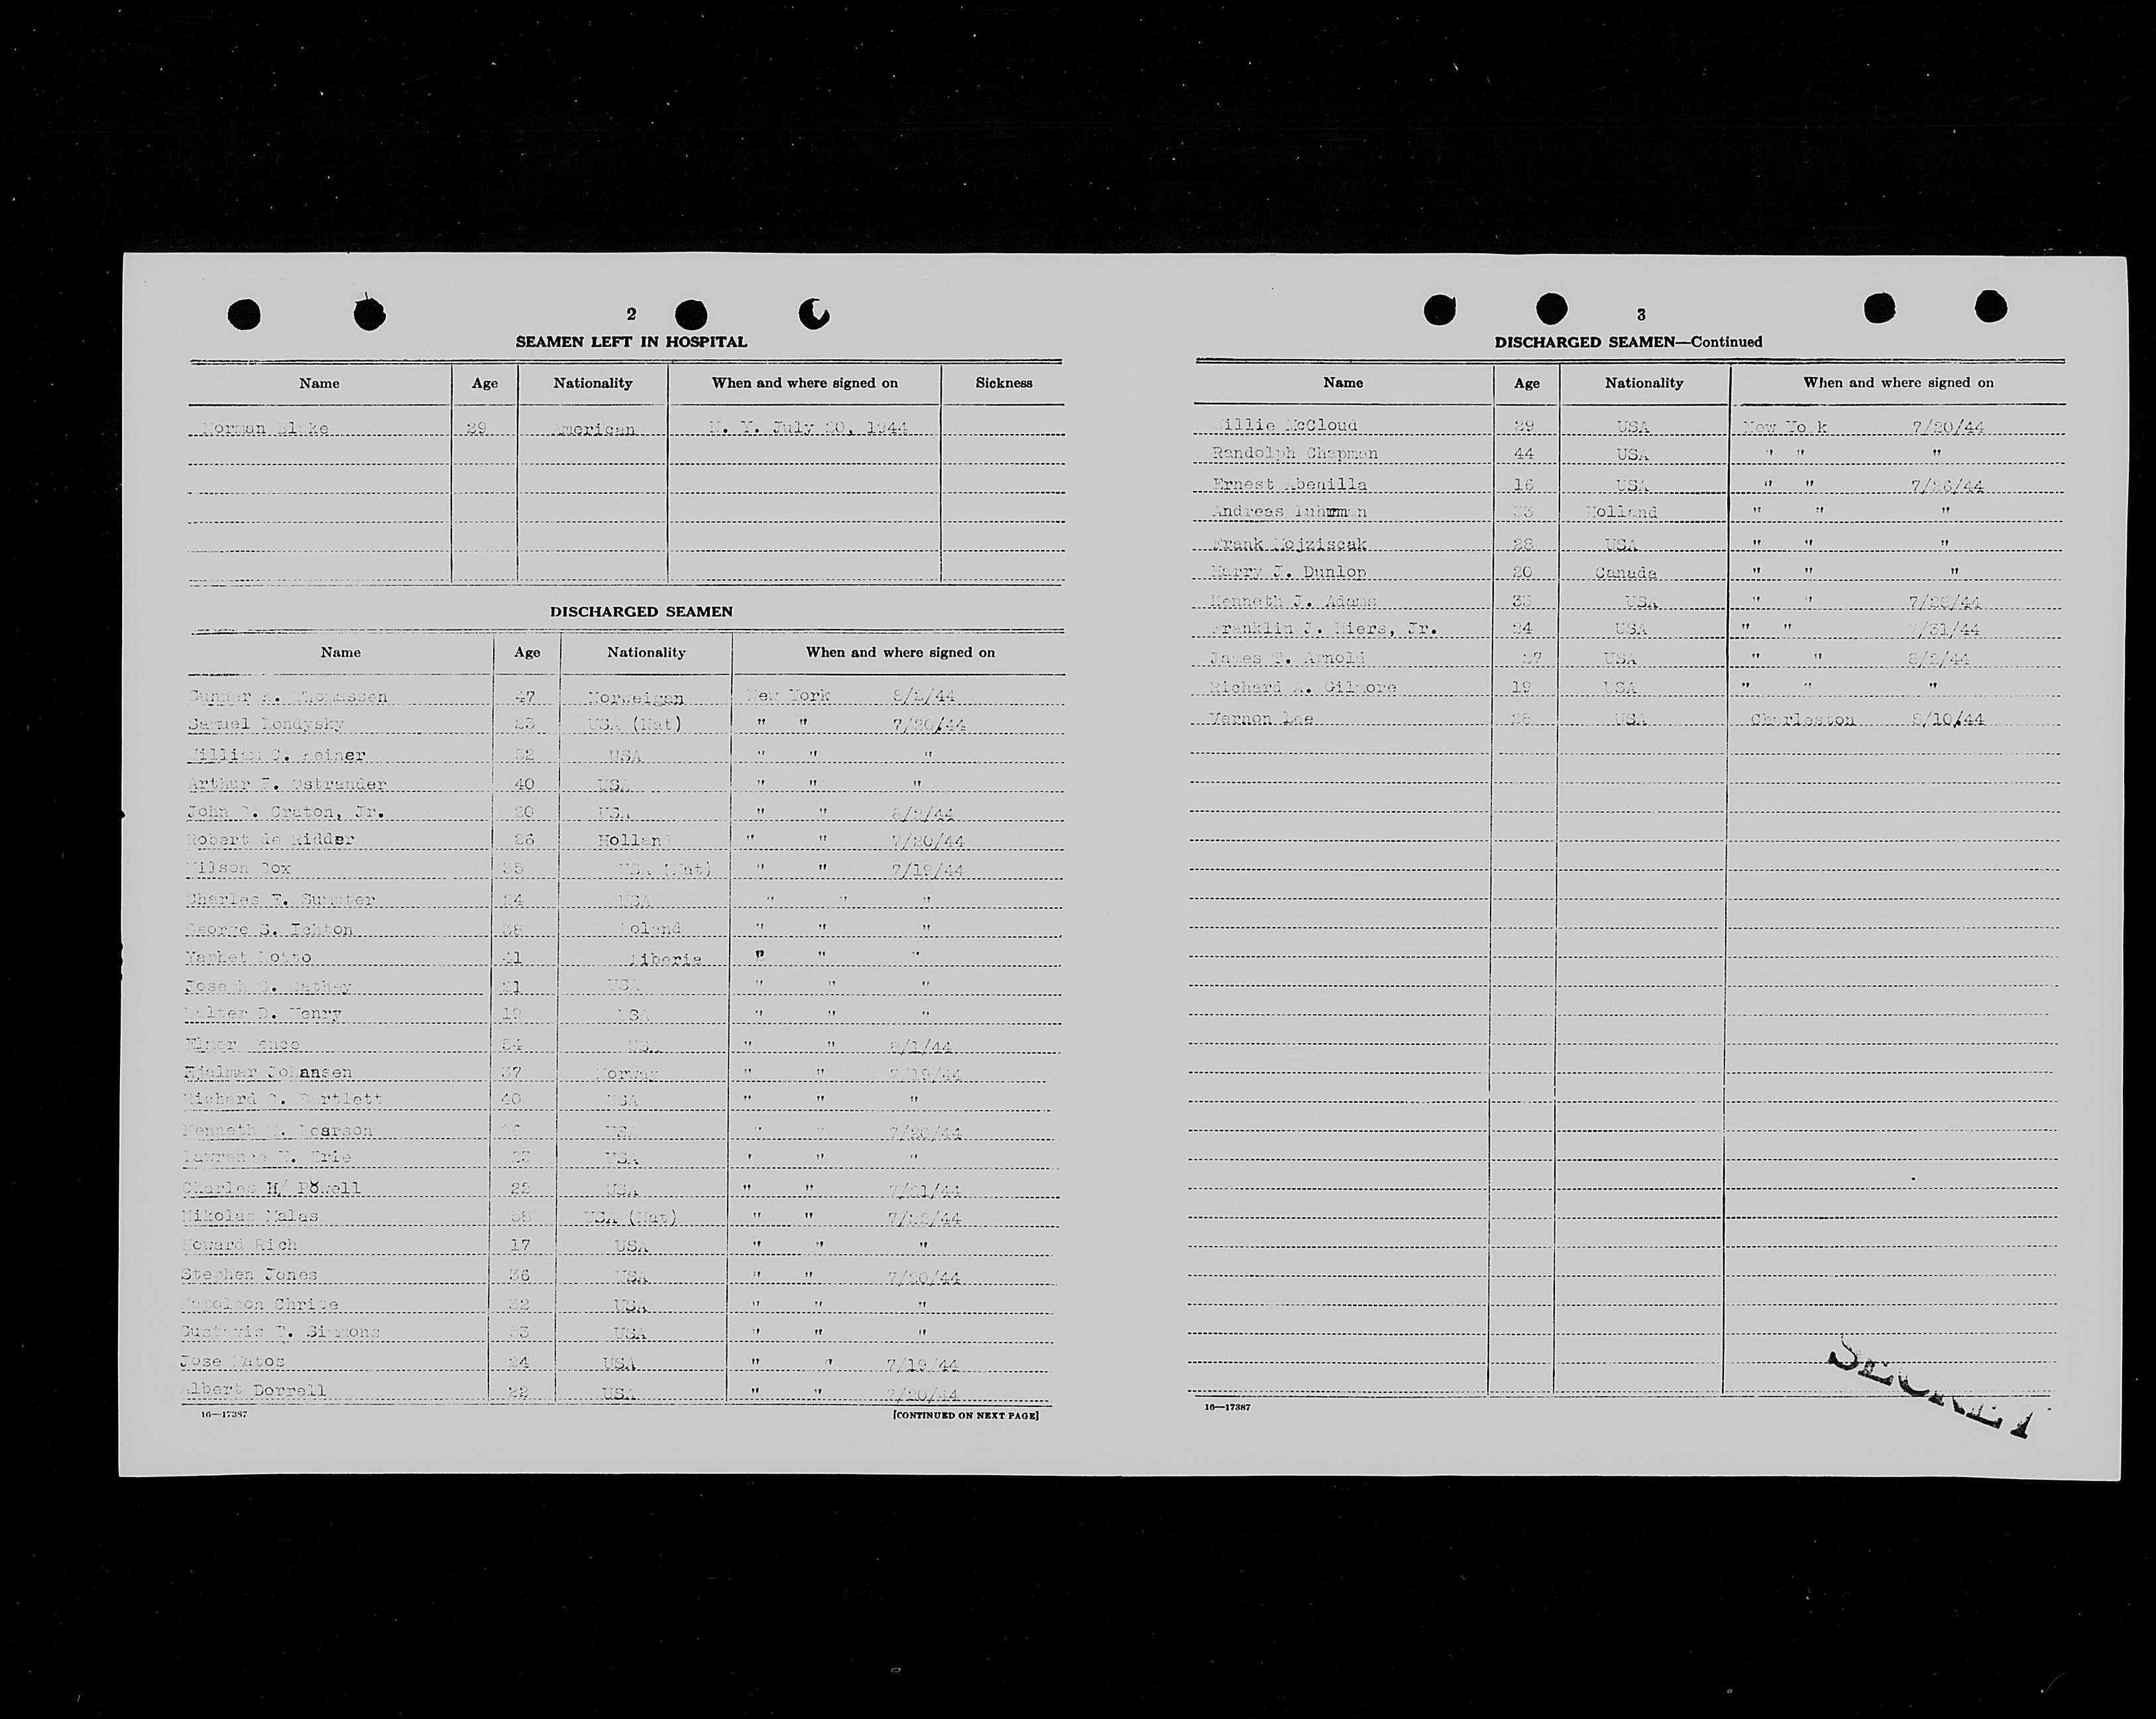 2
SEAMEN LEFT IN HOSPITAL
Name Age Nationality When and where signed on Sickness
Norman Blake 29 American N. Y. July 20, 1944
DISCHARGED SEAMEN
Name Age Nationality When and where signed on
Gunnar Thomassen 47 Norweigan New York 8/2/44
Samuel Londysky USA (Nat) " " 7/20/44
William C. USA " " "
Arthur Ostrander 40 USA " " "
John Craton, Jr. 20 USA " " 8/2/44
Robert de Ridder 26 Holland " " 7/20/44
Wilson Cox USA (Nat) " " 7/19/44
Charles E. Sumpter 24 USA " " "
George S. Poland " " "
41 Liberia " " "
Joseph Cathey 21 USA " " "
Walter D. Henry 19 USA " " "
Elmer 54 USA " " 8/1/44
Hjalmar Johansen 37 Norway " " 7/19/44
Richard C. Bartlett 40 USA " " "
Kenneth Pearson USA " " 7/20/44
Lawrence USA " " "
Charles H/ Powell 22 USA " " 7/21/44
Nikolas 58 USA (Nat) " " 7/22/44
Howard Rich 17 USA " " "
Stephen Jones 36 USA " " 7/20/44
Napoleon 32 USA " " "
Simmons USA " " "
Jose Matos 24 USA " " 7/19/44
Albert Dorrell 22 USA " " 7/20/44
16—17387 [CONTINUED ON NEXT PAGE]
3
DISCHARGED SEAMEN—Continued
Name Age Nationality When and where signed on
Willie McCloud 29 USA New York 7/20/44
Randolph Chapman 44 USA " " "
Ernest Abenilla 16 USA " " 7/26/44
Andreas Luhrman 33 Holland " " "
Frank Mojziscak USA " " "
Harry J. Dunlop 20 Canada " " "
Kenneth J. Adams USA " " 7/28/44
Franklin J. Miers, Jr. 24 USA " " 7/31/44
James Arnold USA " " 8/2/44
Richard Gilmore 19 USA " " "
Vernon Lee 28 USA Charleston 8/10/44
16—17387
SECRET